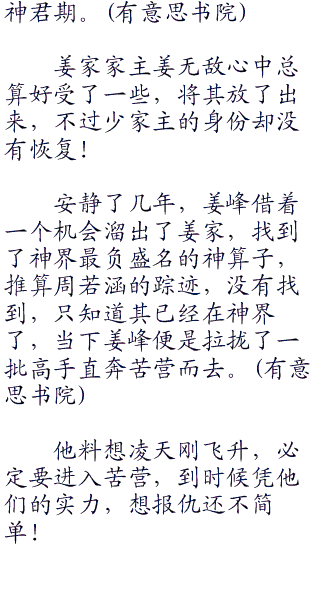 神君期。(有意思书院)
姜家家主姜无敌心中总
算好受了一些，将其放了出
来，不过少家主的身份却没
有恢复！
安静了几年，姜峰借着
一个机会溜出了姜家，找到
了神界最负盛名的神算子，
推算周若涵的踪迹，没有找
到，只知道其已经在神界
了，当下姜峰便是拉拢了一
批高手直奔苦营而去。(有意
思书院)
他料想凌天刚飞升，必
定要进入苦营，到时候凭他
们的实力，想报仇还不简
单！